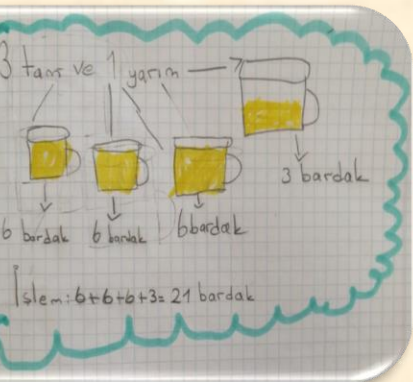 3 tam ve 1 yarım
3 bardak
6 bardak 6 bardak 6 bardak
İşlem: 6+6+6+3= 21 bardak